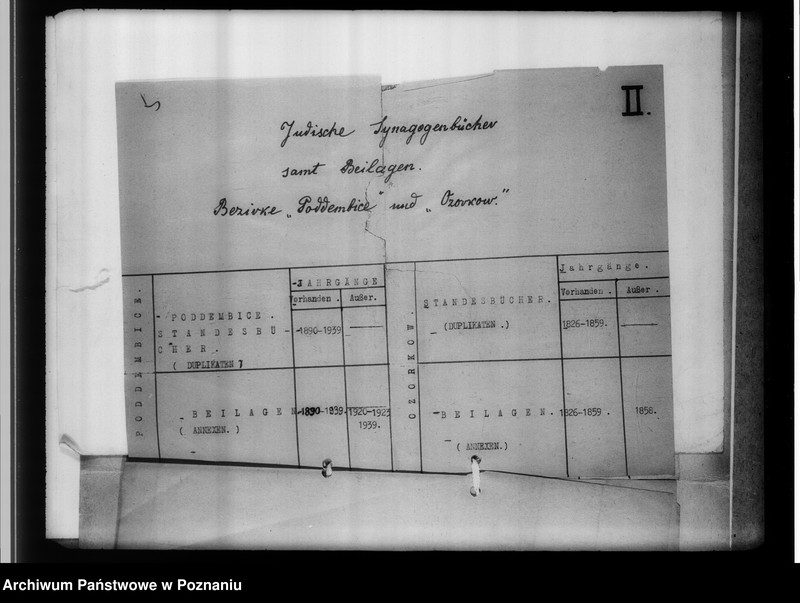 II.
Jüdische Synagogenbücher
samt Beilagen.
Bezirke „Poddembice" und „Ozorkow."
PODDEMBICE.
- PODDEMBICE.
STANDESBÜ-
CHER.
( DUPLIKATEN )
-JAHRGÄNGE
Vorhanden .
Außer.
-1890-1939
- BEILAGEN
( ANNEXEN. )
-1890-1939.
1920-1923
1939.
OZORKOW.
STANDESBÜCHER.
- (DUPLIKATEN .)
Jahrgänge.
Vorhanden .
Außer.
1826-1859.
-BEILAGEN.
( ANNEXEN.)
1826-1859 .
1858.
Archiwum Państwowe w Poznaniu